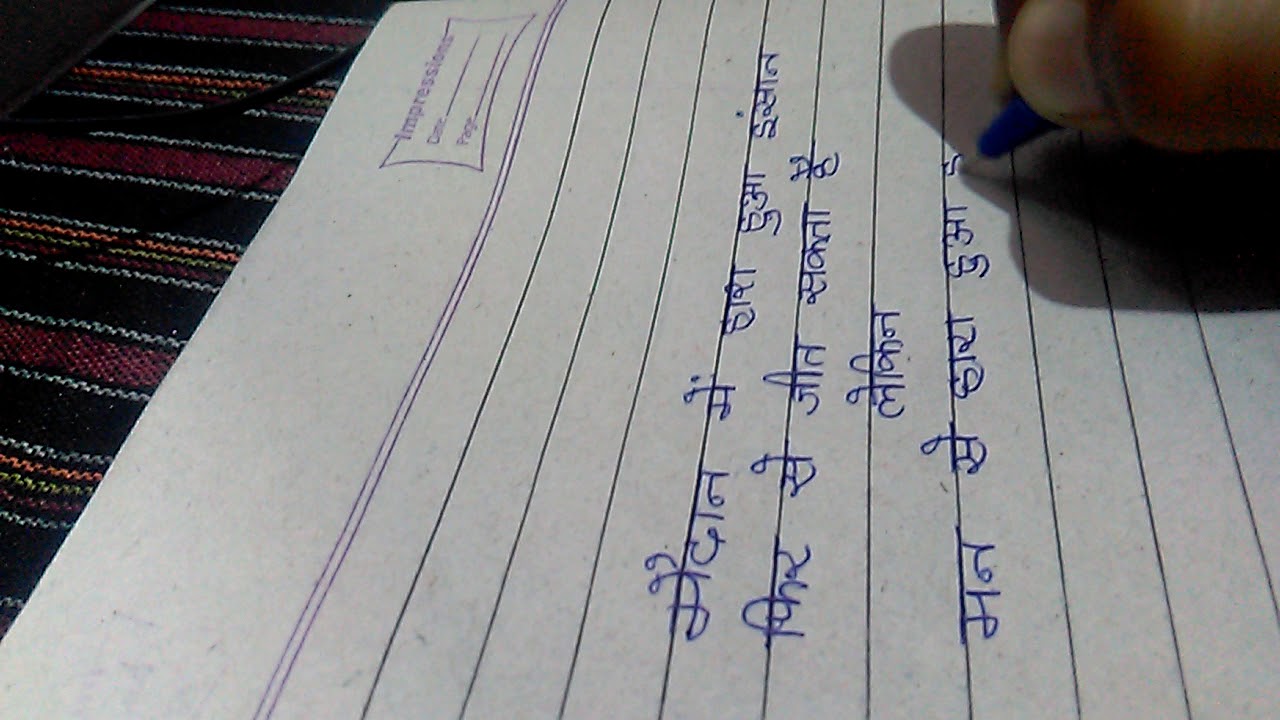 Impressions
Date
Page
मैदान में हारा हुआ इंसान
फिर से जीत सकता है
लेकिन
मन से हारा हुआ